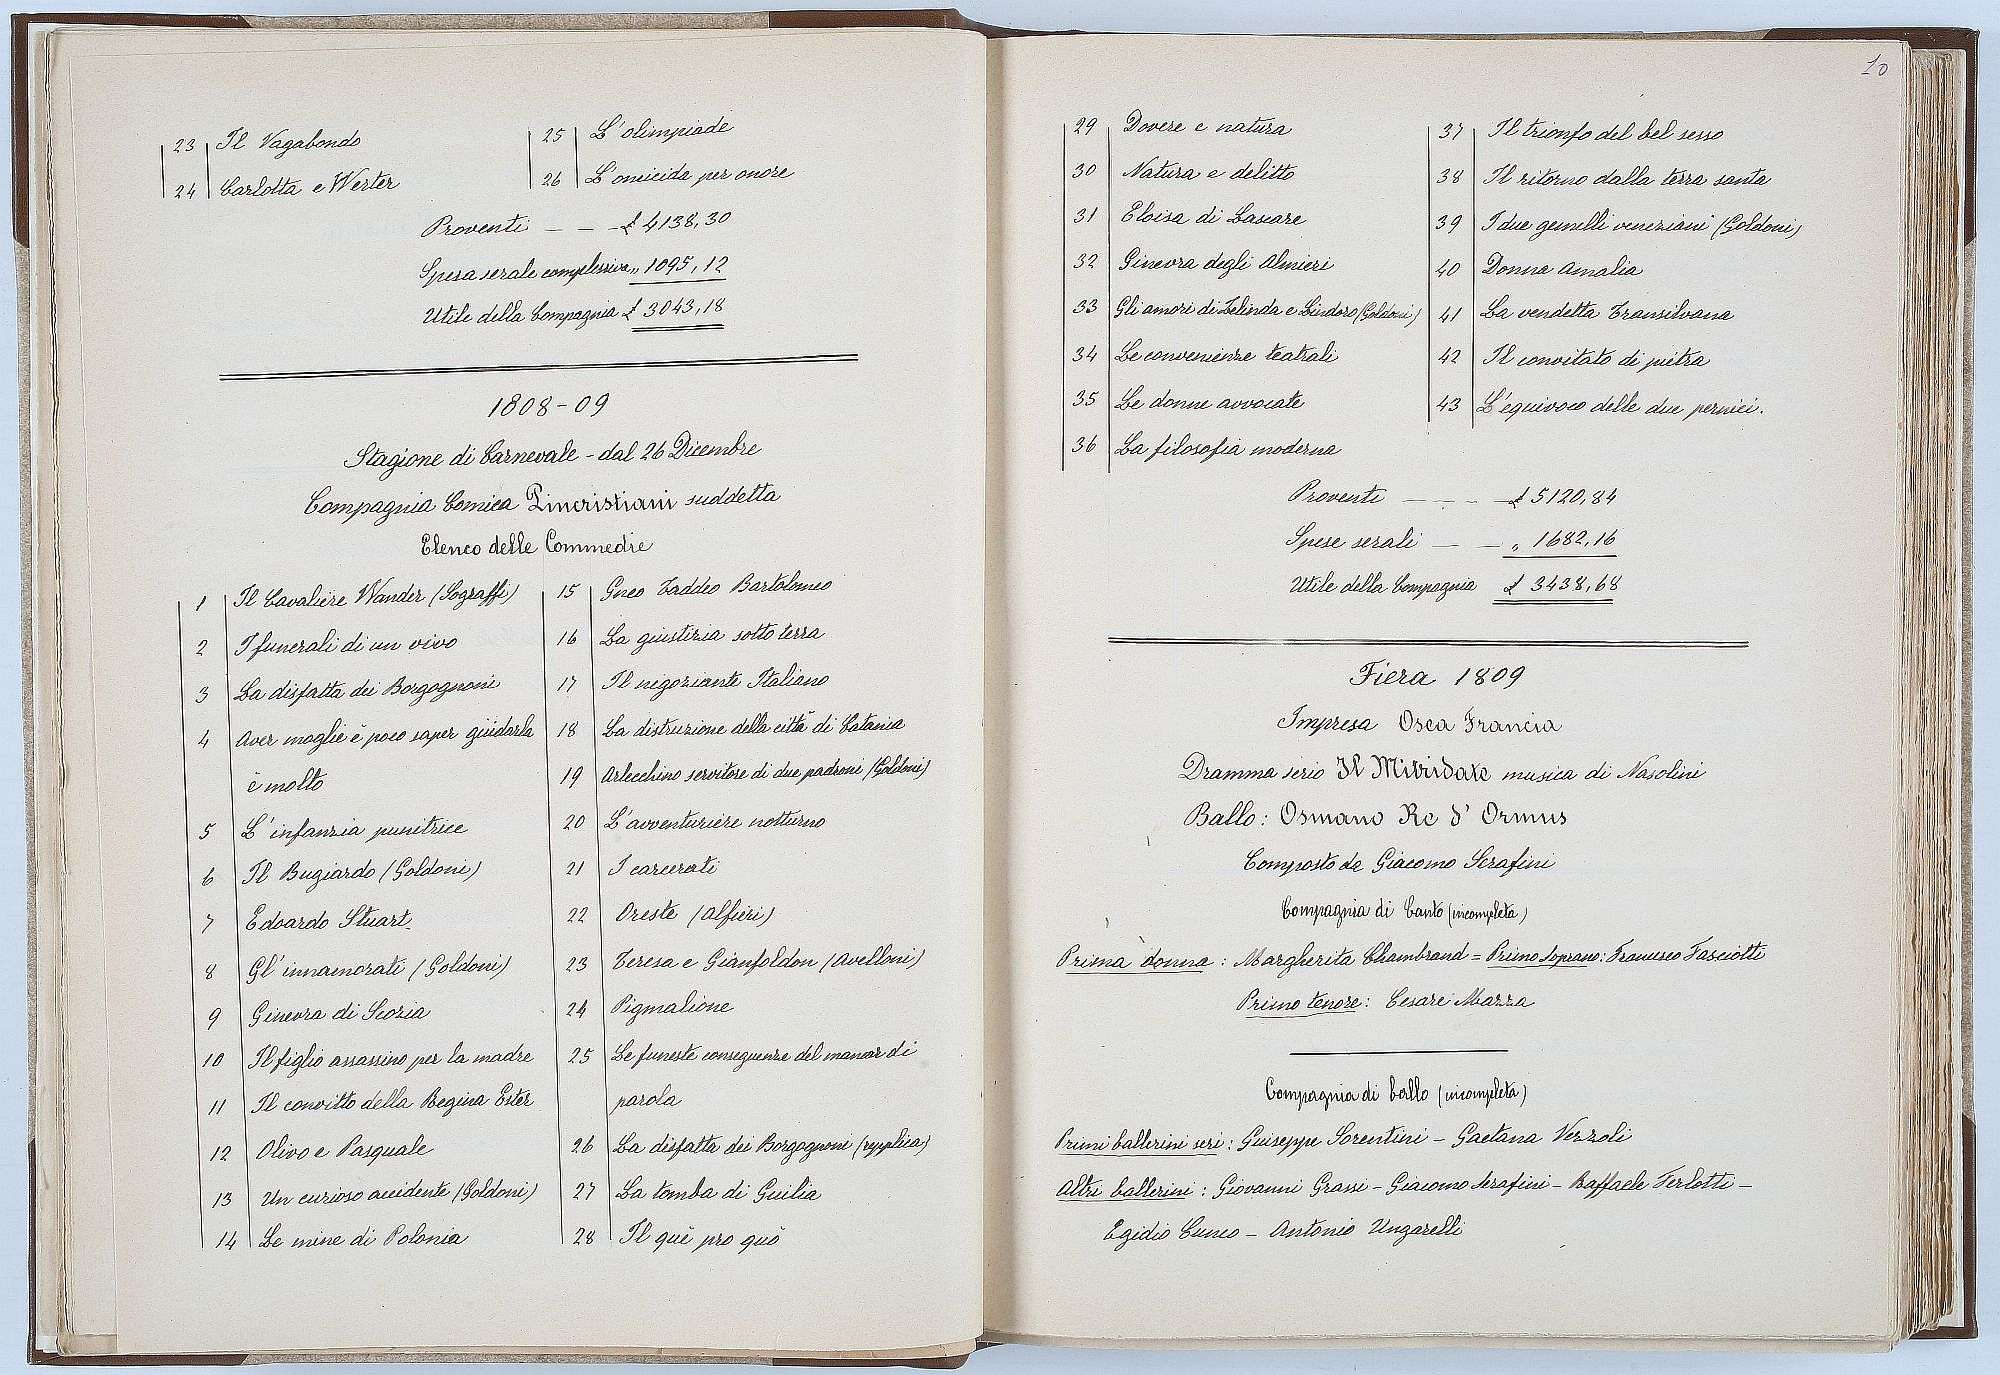 23 Il Vagabondo
24 Carlotta e Werter
25 L'olimpiade
26 L'omicida per onore
Proventi — — — £ 4138,30
Spesa serale complessiva „ 1095,12
Utile della Compagnia £ 3043,18
1808-09
Stagione di Carnevale - dal 26 Dicembre
Compagnia Comica Pincristiani suddetta
Elenco delle Commedie
1 Il Cavaliere Wander (Sograffi)
2 I funerali di un vivo
3 La disfatta dei Borgognoni
4 Aver moglie è poco saper guidarla
è molto
5 L'infanzia punitrice
6 Il Bugiardo (Goldoni)
7 Edoardo Stuart.
8 Gl'innamorati (Goldoni)
9 Ginevra di Scozia
10 Il figlio assassino per la madre
11 Il convitto della Regina Ester
12 Olivo e Pasquale
13 Un curioso accidente (Goldoni)
14 Le mine di Polonia
15 Gneo Taddeo Bartolomeo
16 La giustizia sotto terra
17 Il negoziante Italiano
18 La distruzione della città di Catania
19 Arlecchino servitore di due padroni (Goldoni)
20 L'avventuriere notturno
21 I carcerati
22 Oreste (Alfieri)
23 Teresa e Gianfoldon (Avelloni)
24 Pigmalione
25 Le funeste conseguenze del mancar di
parola
26 La disfatta dei Borgognoni (replica)
27 La tomba di Guilia
28 Il què pro quò
10
29 Dovere e natura
30 Natura e delitto
31 Eloisa di Lascare
32 Ginevra degli Almieri
33 Gli amori di Zelinda e Lindoro (Goldoni)
34 Le convenienze teatrali
35 Le donne avvocate
36 La filosofia moderna
37 Il trionfo del bel sesso
38 Il ritorno dalla terra santa
39 I due gemelli veneziani (Goldoni)
40 Donna Amalia
41 La vendetta Transilvana
42 Il convitato di pietra
43 L'equivoco delle due pernici.
Proventi — — — £ 5120,84
Spese serali — — „ 1682,16
Utile della Compagnia £ 3438,68
Fiera 1809
Impresa Osea Francia
Dramma serio Il Mitridate musica di Nasolini
Ballo: Osmano Re d'Ormus
Composto da Giacomo Serafini
Compagnia di Canto (incompleta)
Prima donna: Margherita Chambrand = Primo Soprano: Francesco Fasciotti
Primo tenore: Cesare Mazza
Compagnia di ballo (incompleta)
Primi ballerini seri: Guiseppe Sorentini - Gaetana Vezzoli
Altri ballerini: Giovanni Grassi - Giacomo Serafini - Raffaele Ferlotti -
Egidio Cuneo - Antonio Ungarelli